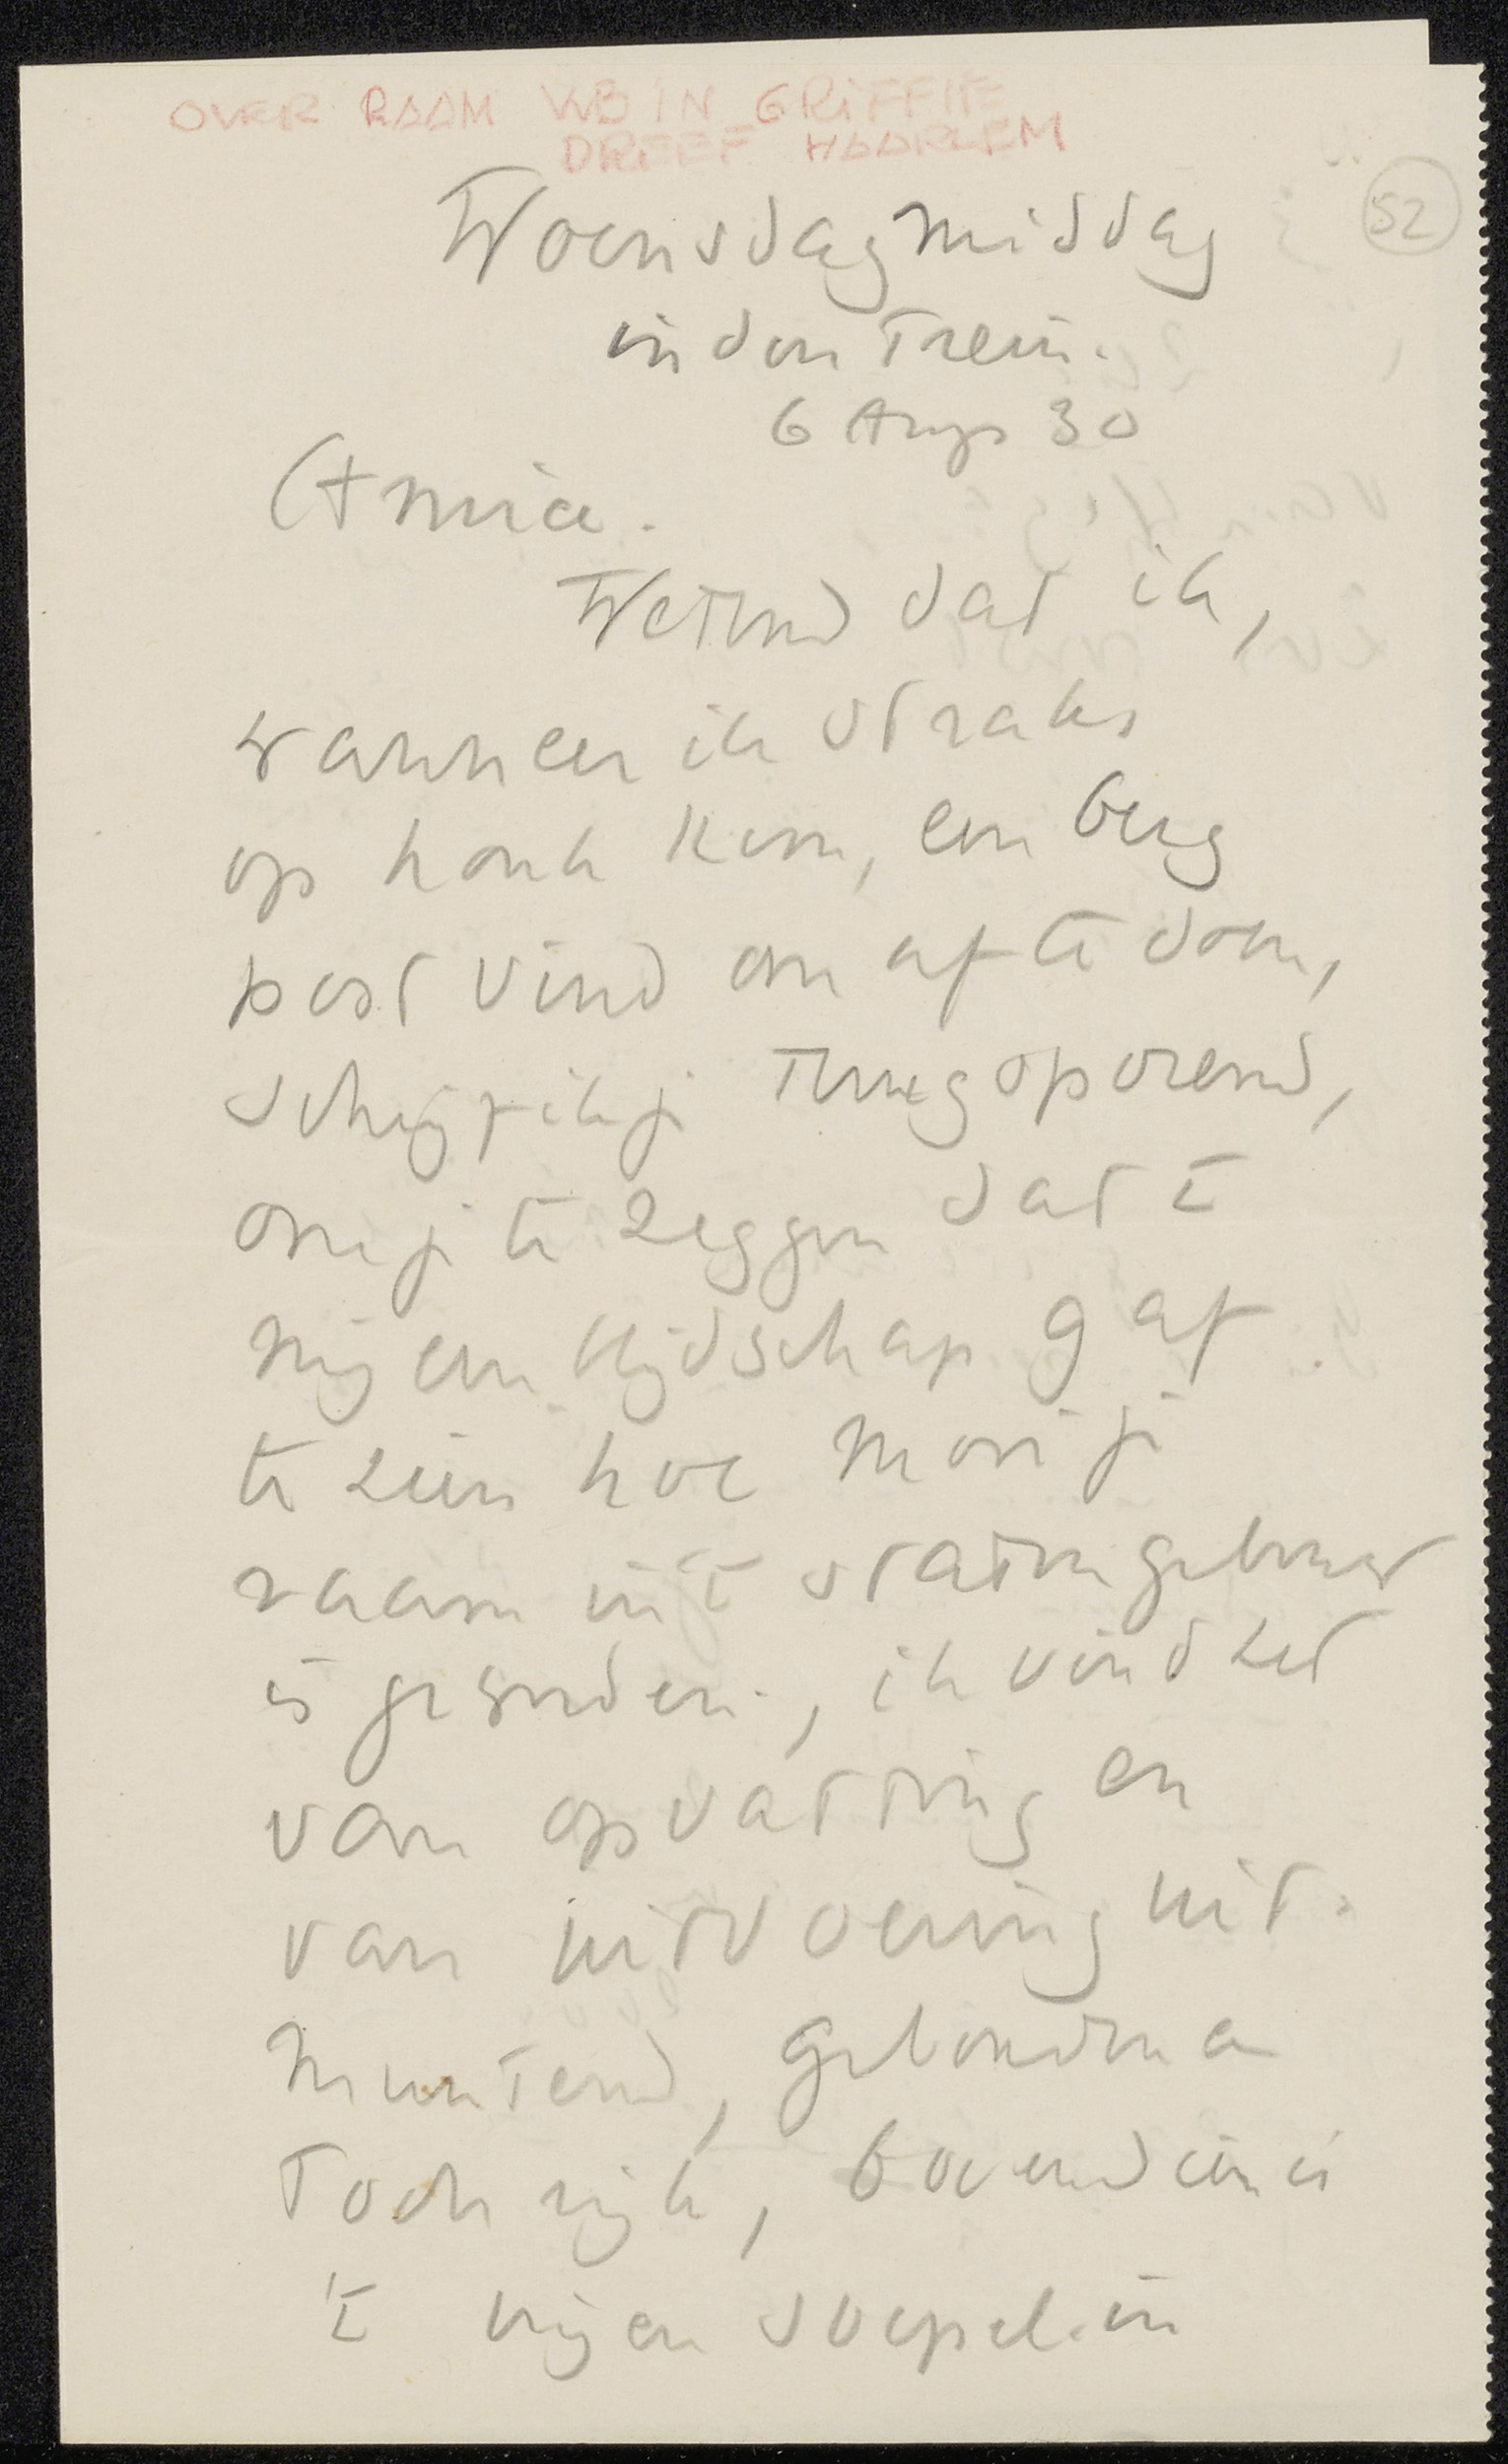 OVER RAAM WB IN GRIFFIE
DREEF HAARLEM
52
Woensdagmiddag
in den trein.
6 Aug 30
Amica.
Wetend dat ik,
wanneer ik straks
op honk kom, een berg
post vind om af te doen,
schrijf ik je terugsporend,
om je te zeggen dat 't
mij een blijdschap gaf
te zien hoe mooi je
raam in 't statengebouw
is geworden, ik vind het
van opvatting en
van uitvoering uit-
muntend, gebonden en
toch rijk, bovendien is
't vrij en soepel in